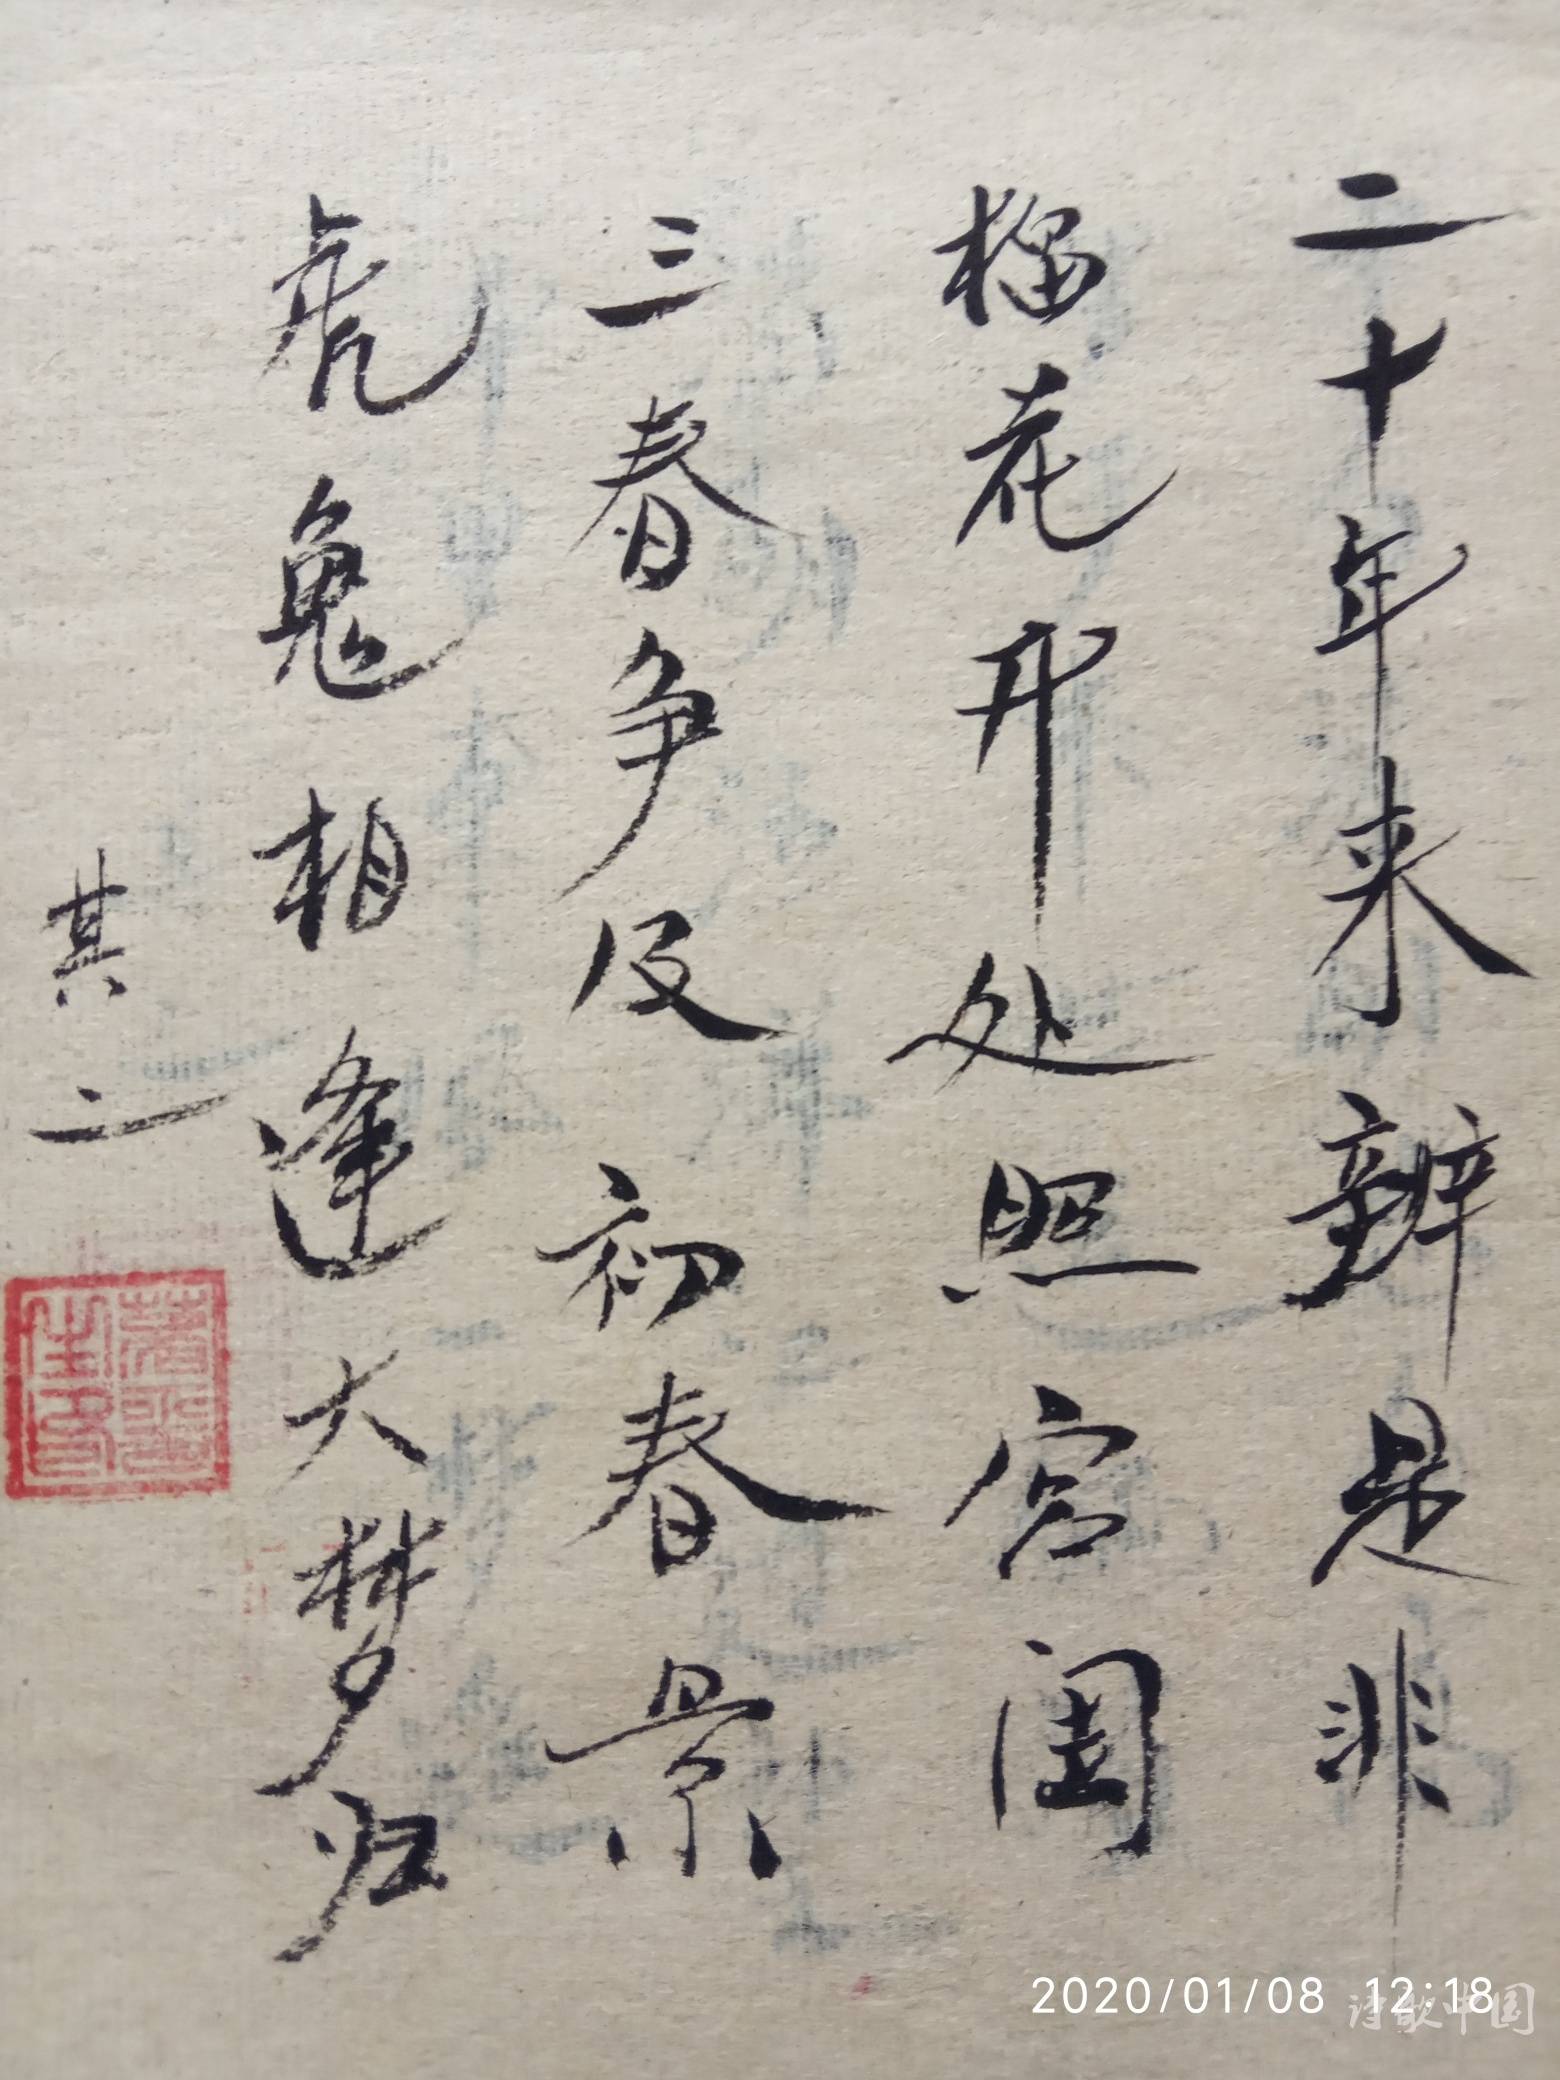 二十年来辨是非
榴花开处照宫闱
三春争及初春景
虎兔相逢大梦归
其二
2020/01/08 12:18
诗歌中国